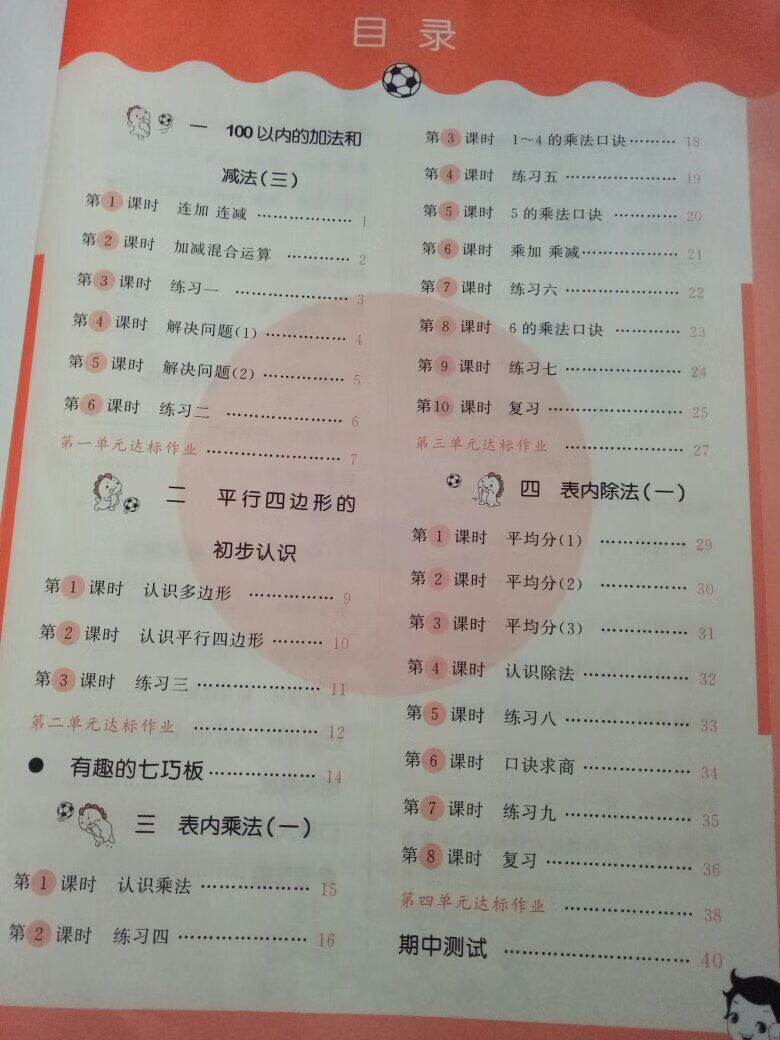 目录
一 100以内的加法和
减法(三)
第1课时 连加 连减 ………………… 1
第2课时 加减混合运算 ………… 2
第3课时 练习一 ………………… 3
第4课时 解决问题(1) …………… 4
第5课时 解决问题(2) …………… 5
第6课时 练习二 ………………… 6
第一单元达标作业 ………………… 7
二 平行四边形的
初步认识
第1课时 认识多边形 …………… 9
第2课时 认识平行四边形 ……… 10
第3课时 练习三 ………………… 11
第二单元达标作业 ………………… 12
● 有趣的七巧板 ……………… 14
三 表内乘法(一)
第1课时 认识乘法 ……………… 15
第2课时 练习四 ………………… 16
第3课时 1～4的乘法口诀 ……… 18
第4课时 练习五 ………………… 19
第5课时 5的乘法口诀 ………… 20
第6课时 乘加 乘减 ……………… 21
第7课时 练习六 ………………… 22
第8课时 6的乘法口诀 ………… 23
第9课时 练习七 ………………… 24
第10课时 复习 …………………… 25
第三单元达标作业 ………………… 27
四 表内除法(一)
第1课时 平均分(1) …………… 29
第2课时 平均分(2) …………… 30
第3课时 平均分(3) …………… 31
第4课时 认识除法 ……………… 32
第5课时 练习八 ………………… 33
第6课时 口诀求商 ……………… 34
第7课时 练习九 ………………… 35
第8课时 复习 …………………… 36
第四单元达标作业 ………………… 38
期中测试 ………………………… 40